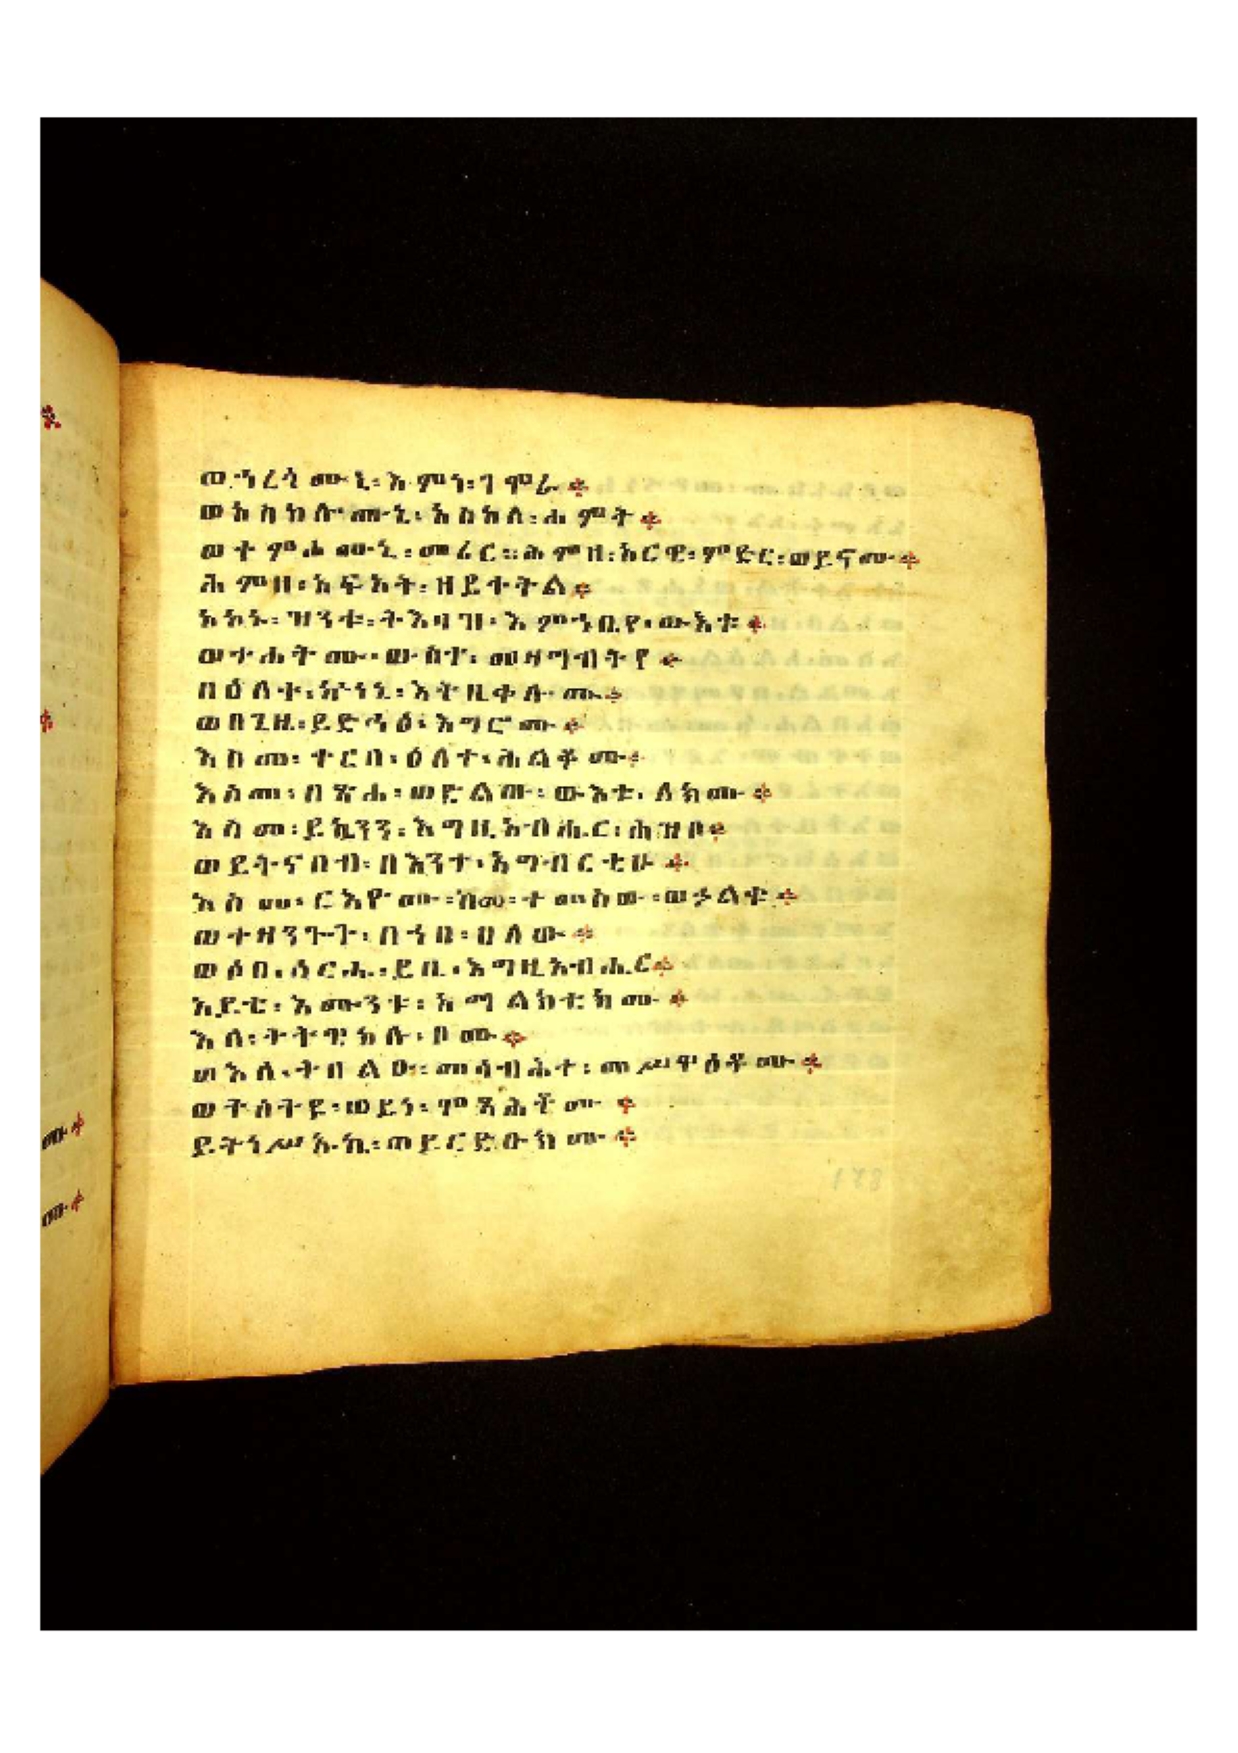 ወኀረጎሙኒ፡እምነ፡ጎሞራ፨
ወአስካሎሙኒ፡አስካለ፡ሐምት፨
ወተምሐሙኒ፡መሪር፡፡ሕምዘ፡አርዌ፡ምድር፡ወይኖሙ፨
ሕምዘ፡አፍኦት፡ዘይቀትል፨
አኮኑ፡ዝንቱ፡ትእዛዝ፡እምኀቤየ፡ውእቱ፨
ወተሐትሙ፡ውስተ፡መዛግብትየ፨
በዕለተ፡ኵነኔ፡እትቤቀሎሙ፨
ወበጊዜ፡ይድኅፅ፡እግሮሙ፨
እስመ፡ቀርበ፡ዕለተ፡ሕልቆሙ፨
እስመ፡በጽሐ፡ወድልው፡ውእቱ፡ለክሙ፨
እስመ፡ይኴንን፡እግዚአብሔር፡ሕዝቦ፨
ወይትናበብ፡በእንተ፡አግብርቲሁ፨
እስመ፡ርእዮሙ፡ከመ፡ተመስዉ፡ወኃልቁ፨
ወተዘንጕጉ፡በኀበ፡ሀለዉ፨
ወሶበ፡ሰርሑ፡ይቤ፡እግዚአብሔር፨
አይቴ፡እሙንቱ፡አማልክቲክሙ፨
እለ፡ትትዌከሉ፡ቦሙ፨
ወእለ፡ትበልዑ፡መሳብሕተ፡መሥዋዕቶሙ፨
ወትሰትዩ፡ወይነ፡ሞጻሕቶሙ፨
ይትነሥኡኬ፡ወይርድኡክሙ፨